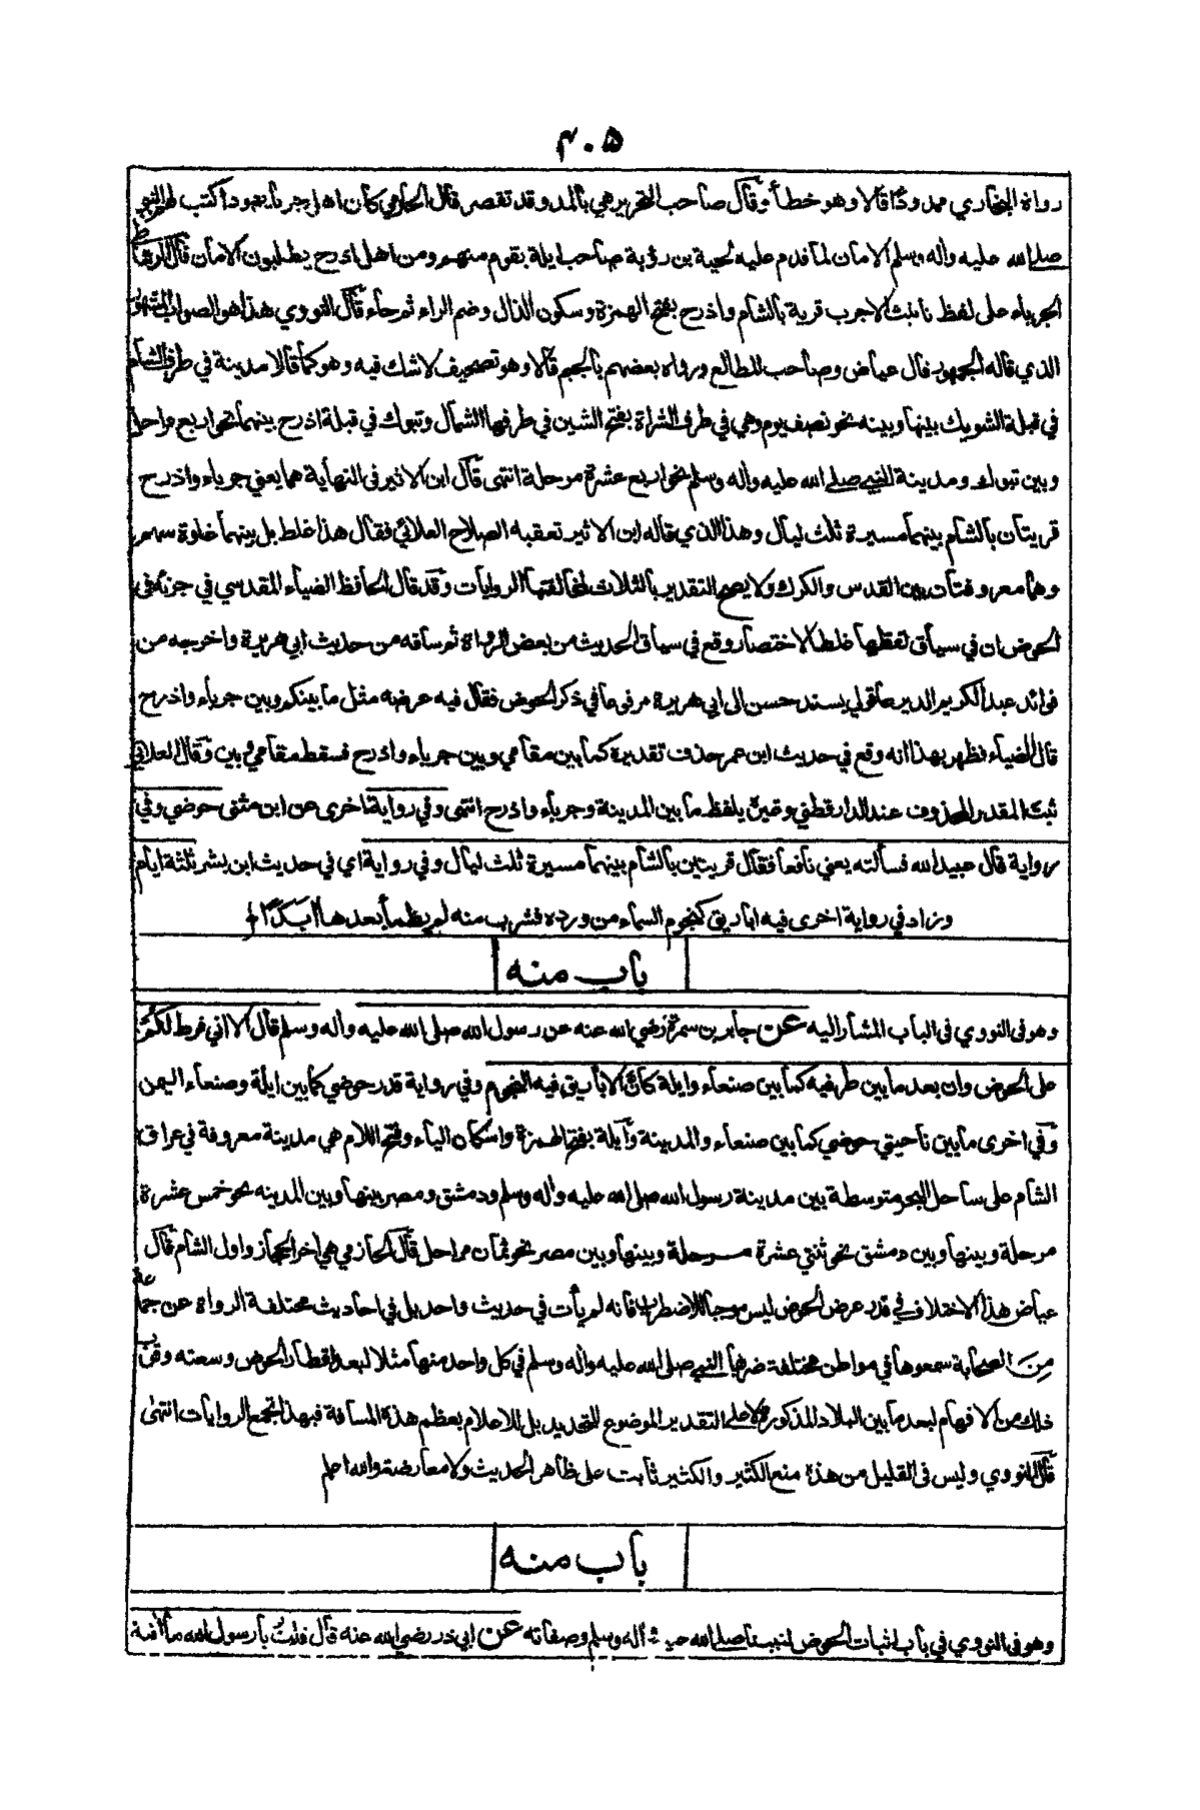 ٤٠٥
رواة البخاري ممدودا قالا وهو خطأ وقال صاحب التحرير هي بالمد وقد تقصر قال الحازمي كان اهل جربا يهود اكتب لهم النبي
صلى الله عليه واله وسلم الامان لما قدم عليه لحية بن رؤبة صاحب ايلة بقوم منهم ومن اهل اذرح يطلبون الامان قال
الجرباء على لفظ تانيث الاجرب قرية بالشام واذرح بفتح الهمزة وسكون الذال وضم الراء ثم حاء قال النووي هذا هو الصواب المشهور
الذي قاله الجمهور قال عياض وصاحب المطالع ورواه بعضهم بالجيم قالا وهو تصحيف لا شك فيه وهو كما قالا مدينة في طرف الشام
في قبلة الشويك بينها وبينه نحو نصف يوم وهي في طرف الشراة بفتح الشين في طرفها الشمال وتبوك في قبلة اذرح بينهما نحو اربع مراحل
وبين تبوك ومدينة النبي صلى الله عليه واله وسلم نحو اربع عشرة مرحلة انتهى قال ابن الاثير فى النهاية هما يعني جرباء واذرح
قريتان بالشام بينهما مسيرة ثلث ليال وهذا الذي قاله ابن الاثير تعقبه الصلاح العلائي فقال هذا غلط بل بينهما غلوة سهم
وهما معروفتان بين القدس والكرك ولا يصح التقدير بالثلاث لمخالفتها الروايات وقد قال الحافظ الضياء المقدسي في جزئه فى
الحوض ان في سياق لفظها غلطا لاختصار وقع في سياق الحديث من بعض الرواة ثم ساقه من حديث ابي هريرة واخرجه من
فوائد عبد الكريم الديرعاقولي بسند حسن الى ابي هريرة مرفوعا في ذكر الحوض فقال فيه عرضه مثل ما بينكم وبين جرباء واذرح
قال الضياء فظهر بهذا انه وقع في حديث ابن عمر حذف تقديره كما بين مقامي وبين جرباء واذرح فسقط مقامي وبين وقال العلائي
ثبت المقدر المحذوف عند الدارقطني وغيره بلفظ ما بين المدينة وجرباء واذرح انتهى وفي رواية اخرى عن ابن مثنى حوضي وفي
رواية قال عبيد الله فسألته يعني نافعا فقال قريتين بالشام بينهما مسيرة ثلث ليال وفي رواية اي في حديث ابن بشر ثلثة ايام
وزاد في رواية اخرى فيه اباريق كنجوم السماء من ورده فشرب منه لم يظمأ بعدها ابدا
باب منه
وهو فى النووي فى الباب المشار اليه عن جابر بن سمرة رضي الله عنه عن رسول الله صلى الله عليه واله وسلم قال الا اني فرط لكم
على الحوض وان بعد ما بين طرفيه كما بين صنعاء وايلة كأن الاباريق فيه النجوم وفي رواية قدر حوضي كما بين ايلة وصنعاء اليمن
وفي اخرى ما بين ناحيتي حوضي كما بين صنعاء والمدينة وايلة بفتح الهمزة واسكان الياء وفتح اللام هي مدينة معروفة في عراق
الشام على ساحل البحر متوسطة بين مدينة رسول الله صلى الله عليه واله وسلم ودمشق ومصر بينها وبين المدينه نحو خمس عشرة
مرحلة وبينها وبين دمشق نحو ثنتي عشرة مرحلة وبينها وبين مصر نحو ثمان مراحل قال الحازمي هي اخر الحجاز واول الشام قال
عياض هذا الاختلاف في قدر عرض الحوض ليس موجبا للاضطراب فانه لم يأت في حديث واحد بل في احاديث مختلفة الرواة عن جماعة
من الصحابة سمعوها في مواطن مختلفة ضربها النبي صلى الله عليه واله وسلم في كل واحد منها مثلا لبعد اقطار الحوض وسعته وقرب
ذلك من الافهام لبعد ما بين البلاد المذكورة لا على التقدير الموضوع للتحديد بل للاعلام بعظم هذه المسافة فبهذا تجمع الروايات انتهى
قال النووي وليس فى القليل من هذه منع الكثير والكثير ثابت على ظاهر الحديث ولا معارضة والله اعلم
باب منه
وهو فى النووي في باب اثبات الحوض لنبينا صلى الله عليه واله وسلم وصفاته عن ابي ذر رضي الله عنه قال قلت يا رسول الله ما انية